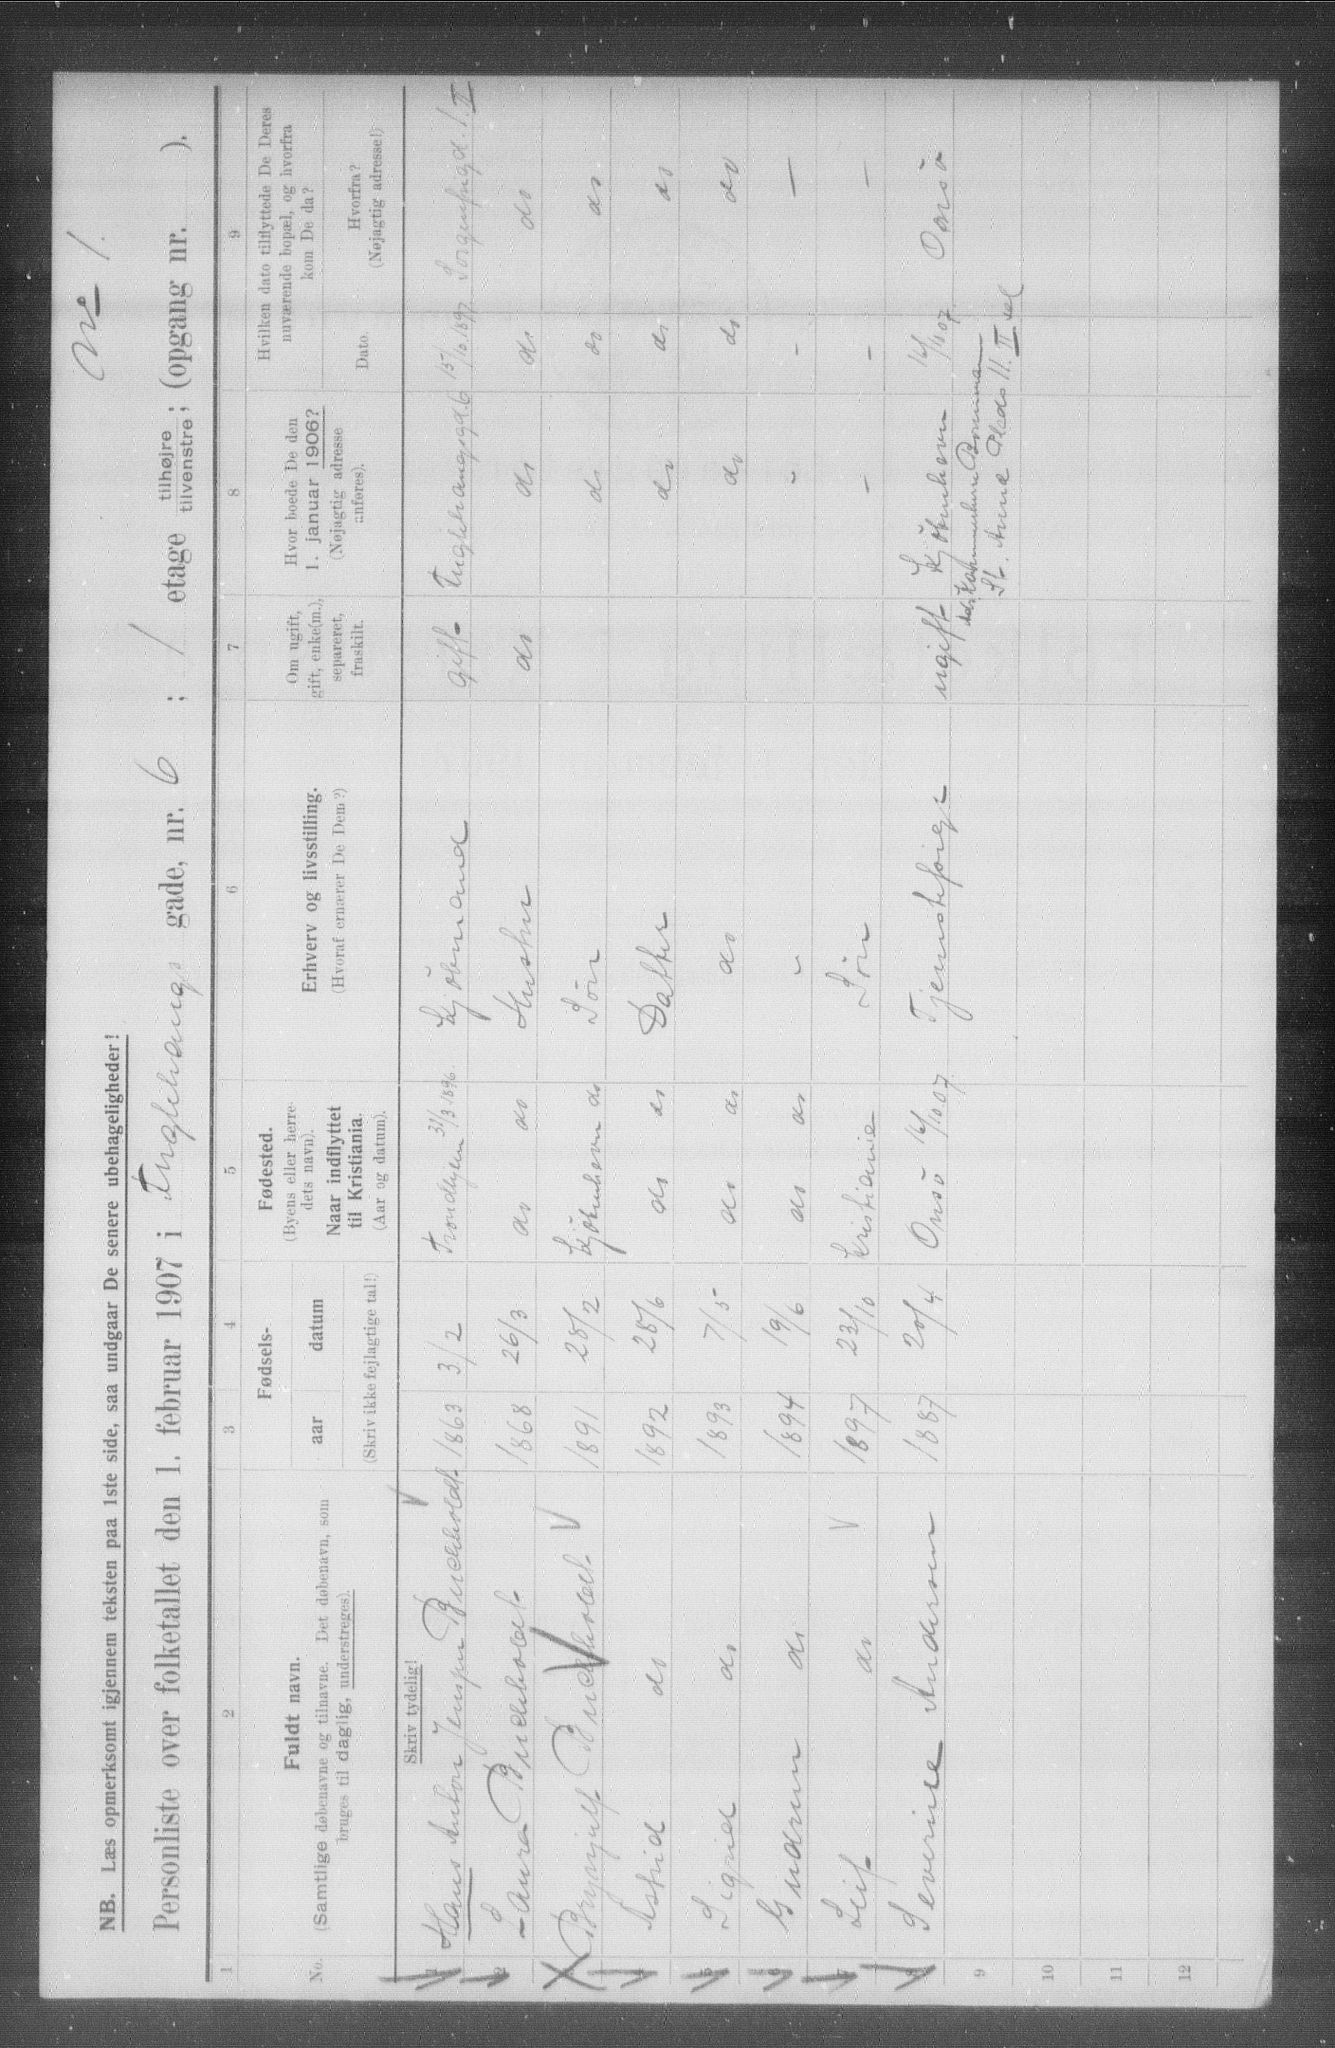 No 1.
NB. Læs opmerksomt igjennem teksten paa 1ste side, saa undgaar De senere ubehageligheder!
Personliste over folketallet den 1. februar 1907 i Fuglehaugs gade, nr. 6 ; 1 etage tilhøjre tilvenstre; (opgang nr. ).
1 2 3 4 5 6 7 8 9
No. Fuldt navn. (Samtlige døbenavne og tilnavne. Det døbenavn, som bruges til daglig, understreges). Fødsels- aar datum (Skriv ikke fejlagtige tal!) Fødested. (Byens eller herredets navn). Naar indflyttet til Kristiania. (Aar og datum). Erhverv og livsstilling. (Hvoraf ernærer De Dem?) Om ugift, gift, enke(m.), separeret, fraskilt. Hvor boede De den 1. januar 1906? (Nøjagtig adresse anføres). Hvilken dato tilflyttede De Deres nuværende bopæl, og hvorfra kom De da? Dato. Hvorfra? (Nøjagtig adresse!)
Skriv tydelig!
1 Hans Anton Jensen Buchholdt 1863 3/2 Trondhjem 31/3 1896. Kjöbmand gift Fuglehaugsgd. 6 15/10 1897 Sorgenfrigd. 1. II
2 Laura Buchholdt 1868 26/3 do do Hustru do do do do
3 Brynjulf Buchholdt 1891 28/2 Kjöbenhavn do Sön do do do
4 Astrid do 1892 28/6 do do Datter do do do
5 Sigrid do 1893 7/5 do do do do do do
6 Gudrun do 1894 19/6 do do - - - -
7 Leif do 1897 23/10 Kristiania Sön - - -
8 Severine Andersen 1887 20/4 Onsö 16/10 07 Tjenestepige ugift Kjöbenhavn 16/10 07. Onsö
St. Annæ Plads 11. II
9
10
11
12